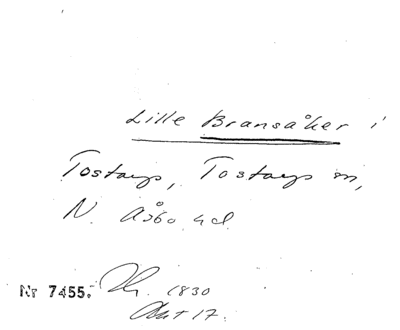 Lille Bransåker i
Tostarp, Tostarps sn,
N. Åsbo hd
Nr 7455. 1830
Akt 17.